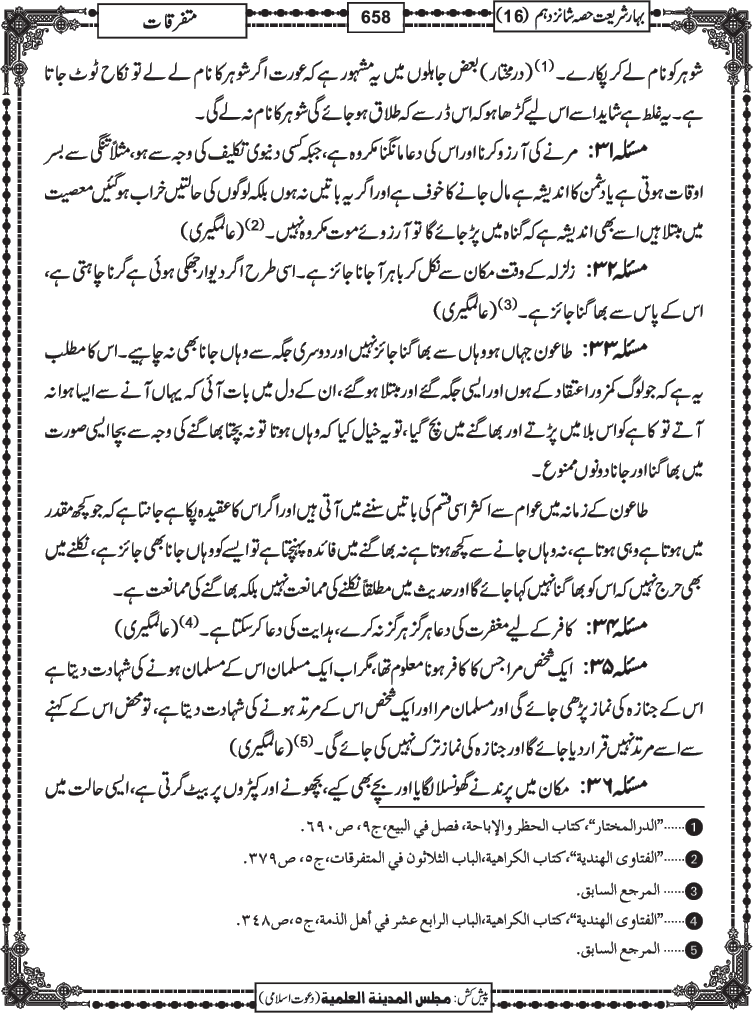 بہار شریعت حصہ شانزدہم (16)
658
متفرقات
شوہر کو نام لے کر پکارے۔(1) (درمختار) بعض جاہلوں میں یہ مشہور ہے کہ عورت اگر شوہر کا نام لے لے تو نکاح ٹوٹ جاتا
ہے۔ یہ غلط ہے شاید اسے اس لیے گڑھا ہو کہ اس ڈر سے کہ طلاق ہو جائے گی شوہر کا نام نہ لے گی۔
مسئلہ ۳۱: مرنے کی آرزو کرنا اور اس کی دعا مانگنا مکروہ ہے، جبکہ کسی دنیوی تکلیف کی وجہ سے ہو، مثلاً تنگی سے بسر
اوقات ہوتی ہے یا دشمن کا اندیشہ ہے مال جانے کا خوف ہے اور اگر یہ باتیں نہ ہوں بلکہ لوگوں کی حالتیں خراب ہو گئیں معصیت
میں مبتلا ہیں اسے بھی اندیشہ ہے کہ گناہ میں پڑ جائے گا تو آرزوئے موت مکروہ نہیں۔(2) (عالمگیری)
مسئلہ ۳۲: زلزلہ کے وقت مکان سے نکل کر باہر آ جانا جائز ہے۔ اسی طرح اگر دیوار جھکی ہوئی ہے گرنا چاہتی ہے،
اس کے پاس سے بھاگنا جائز ہے۔(3) (عالمگیری)
مسئلہ ۳۳: طاعون جہاں ہو وہاں سے بھاگنا جائز نہیں اور دوسری جگہ سے وہاں جانا بھی نہ چاہیے۔ اس کا مطلب
یہ ہے کہ جو لوگ کمزور اعتقاد کے ہوں اور ایسی جگہ گئے اور مبتلا ہو گئے، ان کے دل میں بات آئی کہ یہاں آنے سے ایسا ہوا نہ
آتے تو کاہے کو اس بلا میں پڑتے اور بھاگنے میں بچ گیا، تو یہ خیال کیا کہ وہاں ہوتا تو نہ بچتا بھاگنے کی وجہ سے بچا ایسی صورت
میں بھاگنا اور جانا دونوں ممنوع۔
طاعون کے زمانہ میں عوام سے اکثر اسی قسم کی باتیں سننے میں آتی ہیں اور اگر اس کا عقیدہ پکا ہے جانتا ہے کہ جو کچھ مقدر
میں ہوتا ہے وہی ہوتا ہے، نہ وہاں جانے سے کچھ ہوتا ہے نہ بھاگنے میں فائدہ پہنچتا ہے تو ایسے کو وہاں جانا بھی جائز ہے، نکلنے میں
بھی حرج نہیں کہ اس کو بھاگنا نہیں کہا جائے گا اور حدیث میں مطلقاً نکلنے کی ممانعت نہیں بلکہ بھاگنے کی ممانعت ہے۔
مسئلہ ۳۴: کافر کے لیے مغفرت کی دعا ہرگز ہرگز نہ کرے، ہدایت کی دعا کر سکتا ہے۔(4) (عالمگیری)
مسئلہ ۳۵: ایک شخص مرا جس کا کافر ہونا معلوم تھا، مگر اب ایک مسلمان اس کے مسلمان ہونے کی شہادت دیتا ہے
اس کے جنازہ کی نماز پڑھی جائے گی اور مسلمان مرا اور ایک شخص اس کے مرتد ہونے کی شہادت دیتا ہے، تو محض اس کے کہنے
سے اسے مرتد نہیں قرار دیا جائے گا اور جنازہ کی نماز ترک نہیں کی جائے گی۔(5) (عالمگیری)
مسئلہ ۳۶: مکان میں پرند نے گھونسلا لگایا اور بچے بھی کیے، بچھونے اور کپڑوں پر بیٹ گرتی ہے، ایسی حالت میں
1 ......"الدرالمختار"، کتاب الحظر والإباحة، فصل في البيع، ج۹، ص۶۹۰.
2 ......"الفتاوی الهندية"، کتاب الکراهية، الباب الثلاثون في المتفرقات، ج۵، ص۳۷۹.
3 ...... المرجع السابق.
4 ......"الفتاوی الهندية"، کتاب الکراهية، الباب الرابع عشر في أهل الذمة، ج۵، ص۳۴۸.
5 ...... المرجع السابق.
پیش کش: مجلس المدینة العلمیة (دعوت اسلامی)